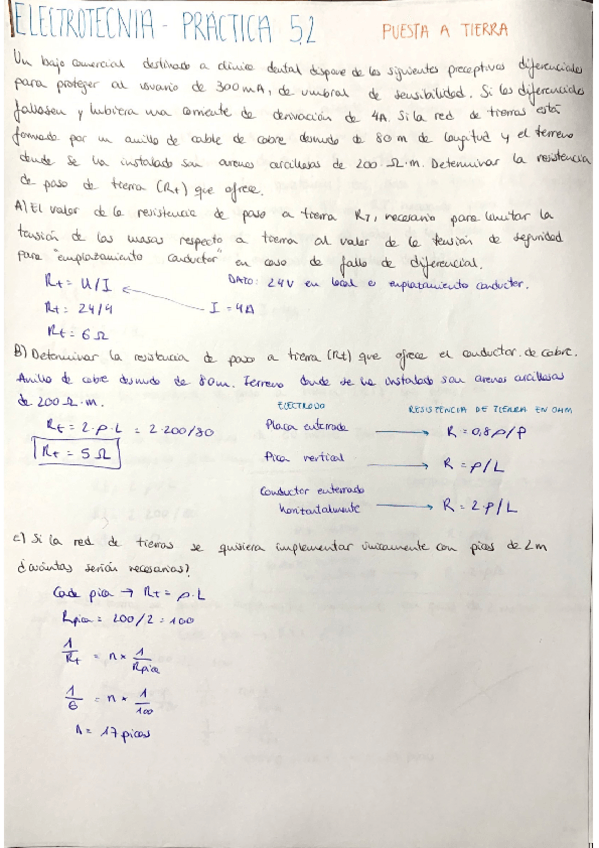 ELECTROTECNIA - PRÁCTICA 5.2 PUESTA A TIERRA
Un bajo comercial destinado a clínica dental dispone de los siguientes preceptivos diferenciales
para proteger al usuario de 300mA, de umbral de sensibilidad. Si los diferenciales
fallasen y hubiera una corriente de derivación de 4A. Si la red de tierras está
formada por un anillo de cable de cobre desnudo de 80 m de longitud y el terreno
donde se ha instalado son arenas arcillosas de 200 Ω·m. Determinar la resistencia
de paso de tierra (Rt) que ofrece.
A) El valor de la resistencia de paso a tierra RT, necesario para limitar la
tensión de las masas respecto a tierra al valor de la tensión de seguridad
para "emplazamiento conductor" en caso de fallo de diferencial.
Rt = U/I DATO: 24V en local o emplazamiento conductor.
Rt = 24/4 I = 4A
Rt = 6 Ω
B) Determinar la resistencia de paso a tierra (Rt) que ofrece el conductor de cobre.
Anillo de cobre desnudo de 80m. Terreno donde se ha instalado son arenas arcillosas
de 200 Ω·m.
ELECTRODO RESISTENCIA DE TIERRA EN OHM
Rt = 2·ρ·L = 2·200/80
Rt = 5 Ω
Placa enterrada → R = 0,8 ρ/P
Pica vertical → R = ρ/L
Conductor enterrado
horizontalmente → R = 2·ρ/L
c) Si la red de tierras se quisiera implementar únicamente con picas de 2m
¿cuántas serían necesarias?
Cada pica → Rt = ρ·L
Rpica = 200/2 = 100
1/Rt = n × 1/Rpica
1/6 = n × 1/100
n = 17 picas